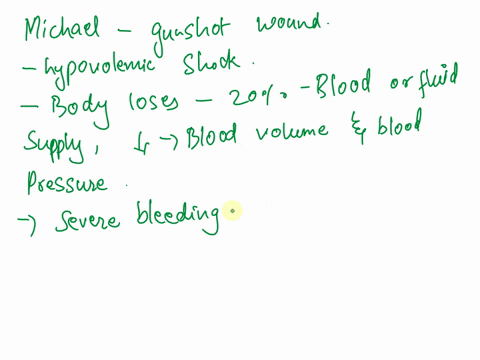 Michael - gunshot wound.
- hypovolemic shock.
- Body loses - 20% - Blood or fluid
supply, ↓ → Blood volume & blood
pressure.
→ severe bleeding